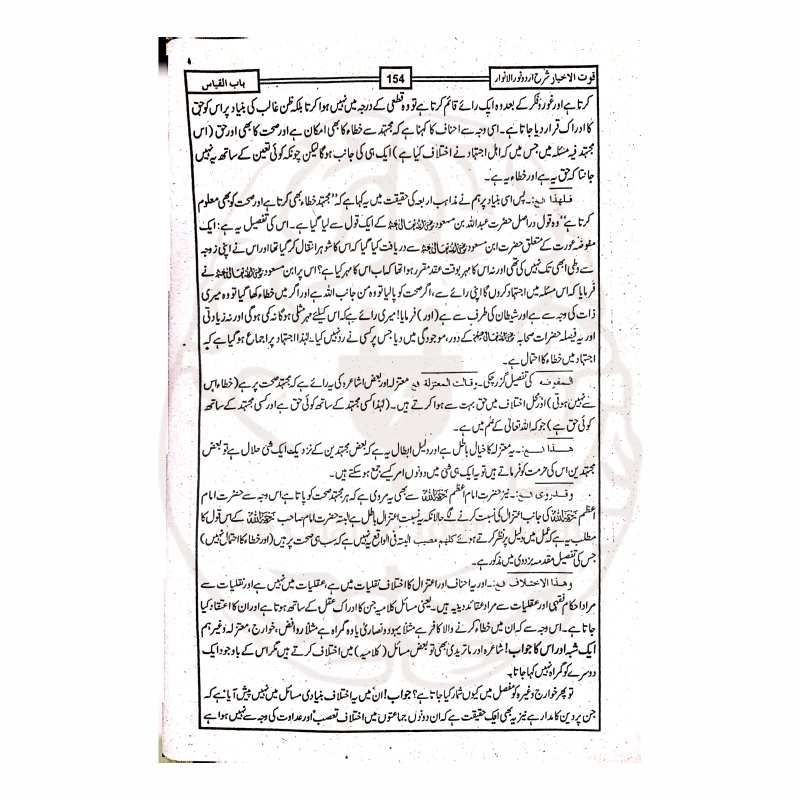 قوت الاخیار شرح اردو نور الانوار 154 باب القیاس
کرتا ہے اور غور و فکر کے بعد وہ ایک رائے قائم کرتا ہے تو وہ قطعی کے درجہ میں نہیں ہوا کرتا بلکہ ظن غالب کی بنیاد پر اس کو حق
کا ادراک قرار دیا جاتا ہے۔ اسی وجہ سے احناف کا کہنا ہے کہ مجتہد سے خطاء کا بھی امکان ہے اور صحت کا بھی اور حق (اس
مجتہد فیہ مسئلہ میں، جس میں کہ اہل اجتہاد نے اختلاف کیا ہے) ایک ہی کی جانب ہوگا لیکن چونکہ کوئی تعین کے ساتھ یہ نہیں
جانتا کہ حق یہ ہے اور خطاء یہ ہے۔
فلهذا الخ:۔ پس اسی بنیاد پر ہم نے مذاہب اربعہ کی حقیقت میں یہ کہا ہے کہ "مجتہد خطاء بھی کرتا ہے اور صحت کو بھی معلوم
کرتا ہے" وہ قول دراصل حضرت عبداللہ بن مسعود کے ایک قول سے لیا گیا ہے۔ اس کی تفصیل یہ ہے: ایک
مفوضہ عورت کے متعلق حضرت ابن مسعود سے دریافت کیا گیا کہ اس کا شوہر انتقال کر گیا تھا اور اس نے اپنی زوجہ
سے وطی ابھی تک نہیں کی تھی اور نہ اس کا مہر بوقت عقد مقرر ہوا تھا کہ اب اس کا مہر کیا ہے؟ اس پر ابن مسعود نے
فرمایا کہ اس مسئلہ میں اجتہاد کروں گا اپنی رائے سے، اگر صحت کو پالیا تو وہ من جانب اللہ ہے اور اگر میں خطاء کھا گیا تو وہ میری
ذات کی وجہ سے ہے اور شیطان کی طرف سے ہے (اور) فرمایا! میری رائے ہے کہ اس کیلئے مہر مثلی ہوگا نہ کمی ہوگی اور نہ زیادتی
اور یہ فیصلہ حضرات صحابہ کے دور، موجودگی میں دیا جس پر کسی نے رد نہیں کیا۔ لہٰذا اجتہاد پر اجماع ہو گیا ہے کہ
اجتہاد میں خطاء کا احتمال ہے۔
المفوضه کی تفصیل گزر چکی۔ وقالت المعتزلة الخ معتزلہ اور بعض اشاعرہ کی رائے ہے کہ مجتہد صحت پر ہے (خطاء اس
سے نہیں ہوتی) اور محل اختلاف میں حق بہت سے ہوا کرتے ہیں۔ (لہٰذا کسی مجتہد کے ساتھ کوئی حق ہے اور کسی مجتہد کے ساتھ
کوئی حق ہے) جو کہ اللہ تعالیٰ کے علم میں ہے۔
هذا الخ:۔ یہ معتزلہ کا خیال باطل ہے اور دلیل ابطال یہ ہے کہ بعض مجتہدین کے نزدیک ایک شئی حلال ہے تو بعض
مجتہدین اس کی حرمت کو فرماتے ہیں تو یہ ایک ہی شئی میں دونوں امر کیسے جمع ہو سکتے ہیں۔
وقد روى الخ۔ نیز حضرت امام اعظم سے بھی یہ مروی ہے کہ ہر مجتہد صحت کو پاتا ہے اس وجہ سے حضرت امام
اعظم کی جانب اعتزال کی نسبت کرنے لگے حالانکہ یہ نسبت اعتزال باطل ہے البتہ حضرت امام صاحب کے اس قول کا
مطلب یہ ہے کہ عمل میں دلیل پر نظر کرتے ہوئے کلهم مصیب البتہ فی الواقع یہ نہیں ہے کہ سب ہی صحت پر ہیں (اور خطاء کا احتمال نہیں)
جس کی تفصیل مقدمہ بزدوی میں مذکور ہے۔
وهذا الاختلاف الخ:۔ اور یہ احناف اور اعتزال کا اختلاف نقلیات میں ہے، عقلیات میں نہیں ہے اور نقلیات سے
مراد احکام فقہی اور عقلیات سے مراد عقائد دینیہ ہیں۔ یعنی مسائل کلامیہ جن کا ادراک عقل کے ساتھ ہوتا ہے اور ان کا اعتقاد کیا
جاتا ہے۔ اس وجہ سے کہ ان میں خطاء کرنے والا کافر ہے مثلاً یہود و نصاریٰ یا وہ گمراہ ہے مثلاً روافض، خوارج، معتزلہ وغیرہم
ایک شبہ اور اس کا جواب! اشاعرہ اور ماتریدی بھی تو بعض مسائل (کلامیہ) میں اختلاف کرتے ہیں مگر اس کے باوجود ایک
دوسرے کو گمراہ نہیں کہا جاتا۔
تو پھر خوارج وغیرہ کو مضل میں کیوں شمار کیا جاتا ہے؟ جواب! ان میں یہ اختلاف بنیادی مسائل میں نہیں پیش آیا ہے کہ
جن پر دین کا مدار ہے نیز یہ بھی ایک حقیقت ہے کہ ان دونوں جماعتوں میں اختلاف تعصب اور عداوت کی وجہ سے نہیں ہوا ہے